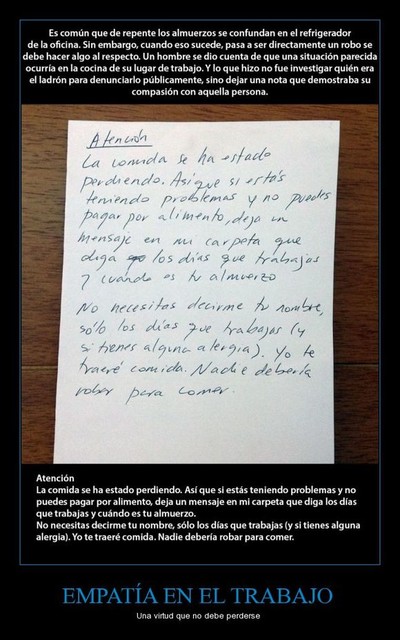 Es común que de repente los almuerzos se confundan en el refrigerador
de la oficina. Sin embargo, cuando eso sucede, pasa a ser directamente un robo se
debe hacer algo al respecto. Un hombre se dio cuenta de que una situación parecida
ocurría en la cocina de su lugar de trabajo. Y lo que hizo no fue investigar quién era
el ladrón para denunciarlo públicamente, sino dejar una nota que demostraba su
compasión con aquella persona.
Atención
La comida se ha estado
perdiendo. Así que si estás
teniendo problemas y no puedes
pagar por alimento, deja un
mensaje en mi carpeta que
diga los días que trabajas
y cuándo es tu almuerzo
No necesitas decirme tu nombre,
sólo los días que trabajas (y
si tienes alguna alergia). Yo te
traeré comida. Nadie debería
robar para comer.
Atención
La comida se ha estado perdiendo. Así que si estás teniendo problemas y no
puedes pagar por alimento, deja un mensaje en mi carpeta que diga los días
que trabajas y cuándo es tu almuerzo.
No necesitas decirme tu nombre, sólo los días que trabajas (y si tienes alguna
alergia). Yo te traeré comida. Nadie debería robar para comer.
EMPATÍA EN EL TRABAJO
Una virtud que no debe perderse